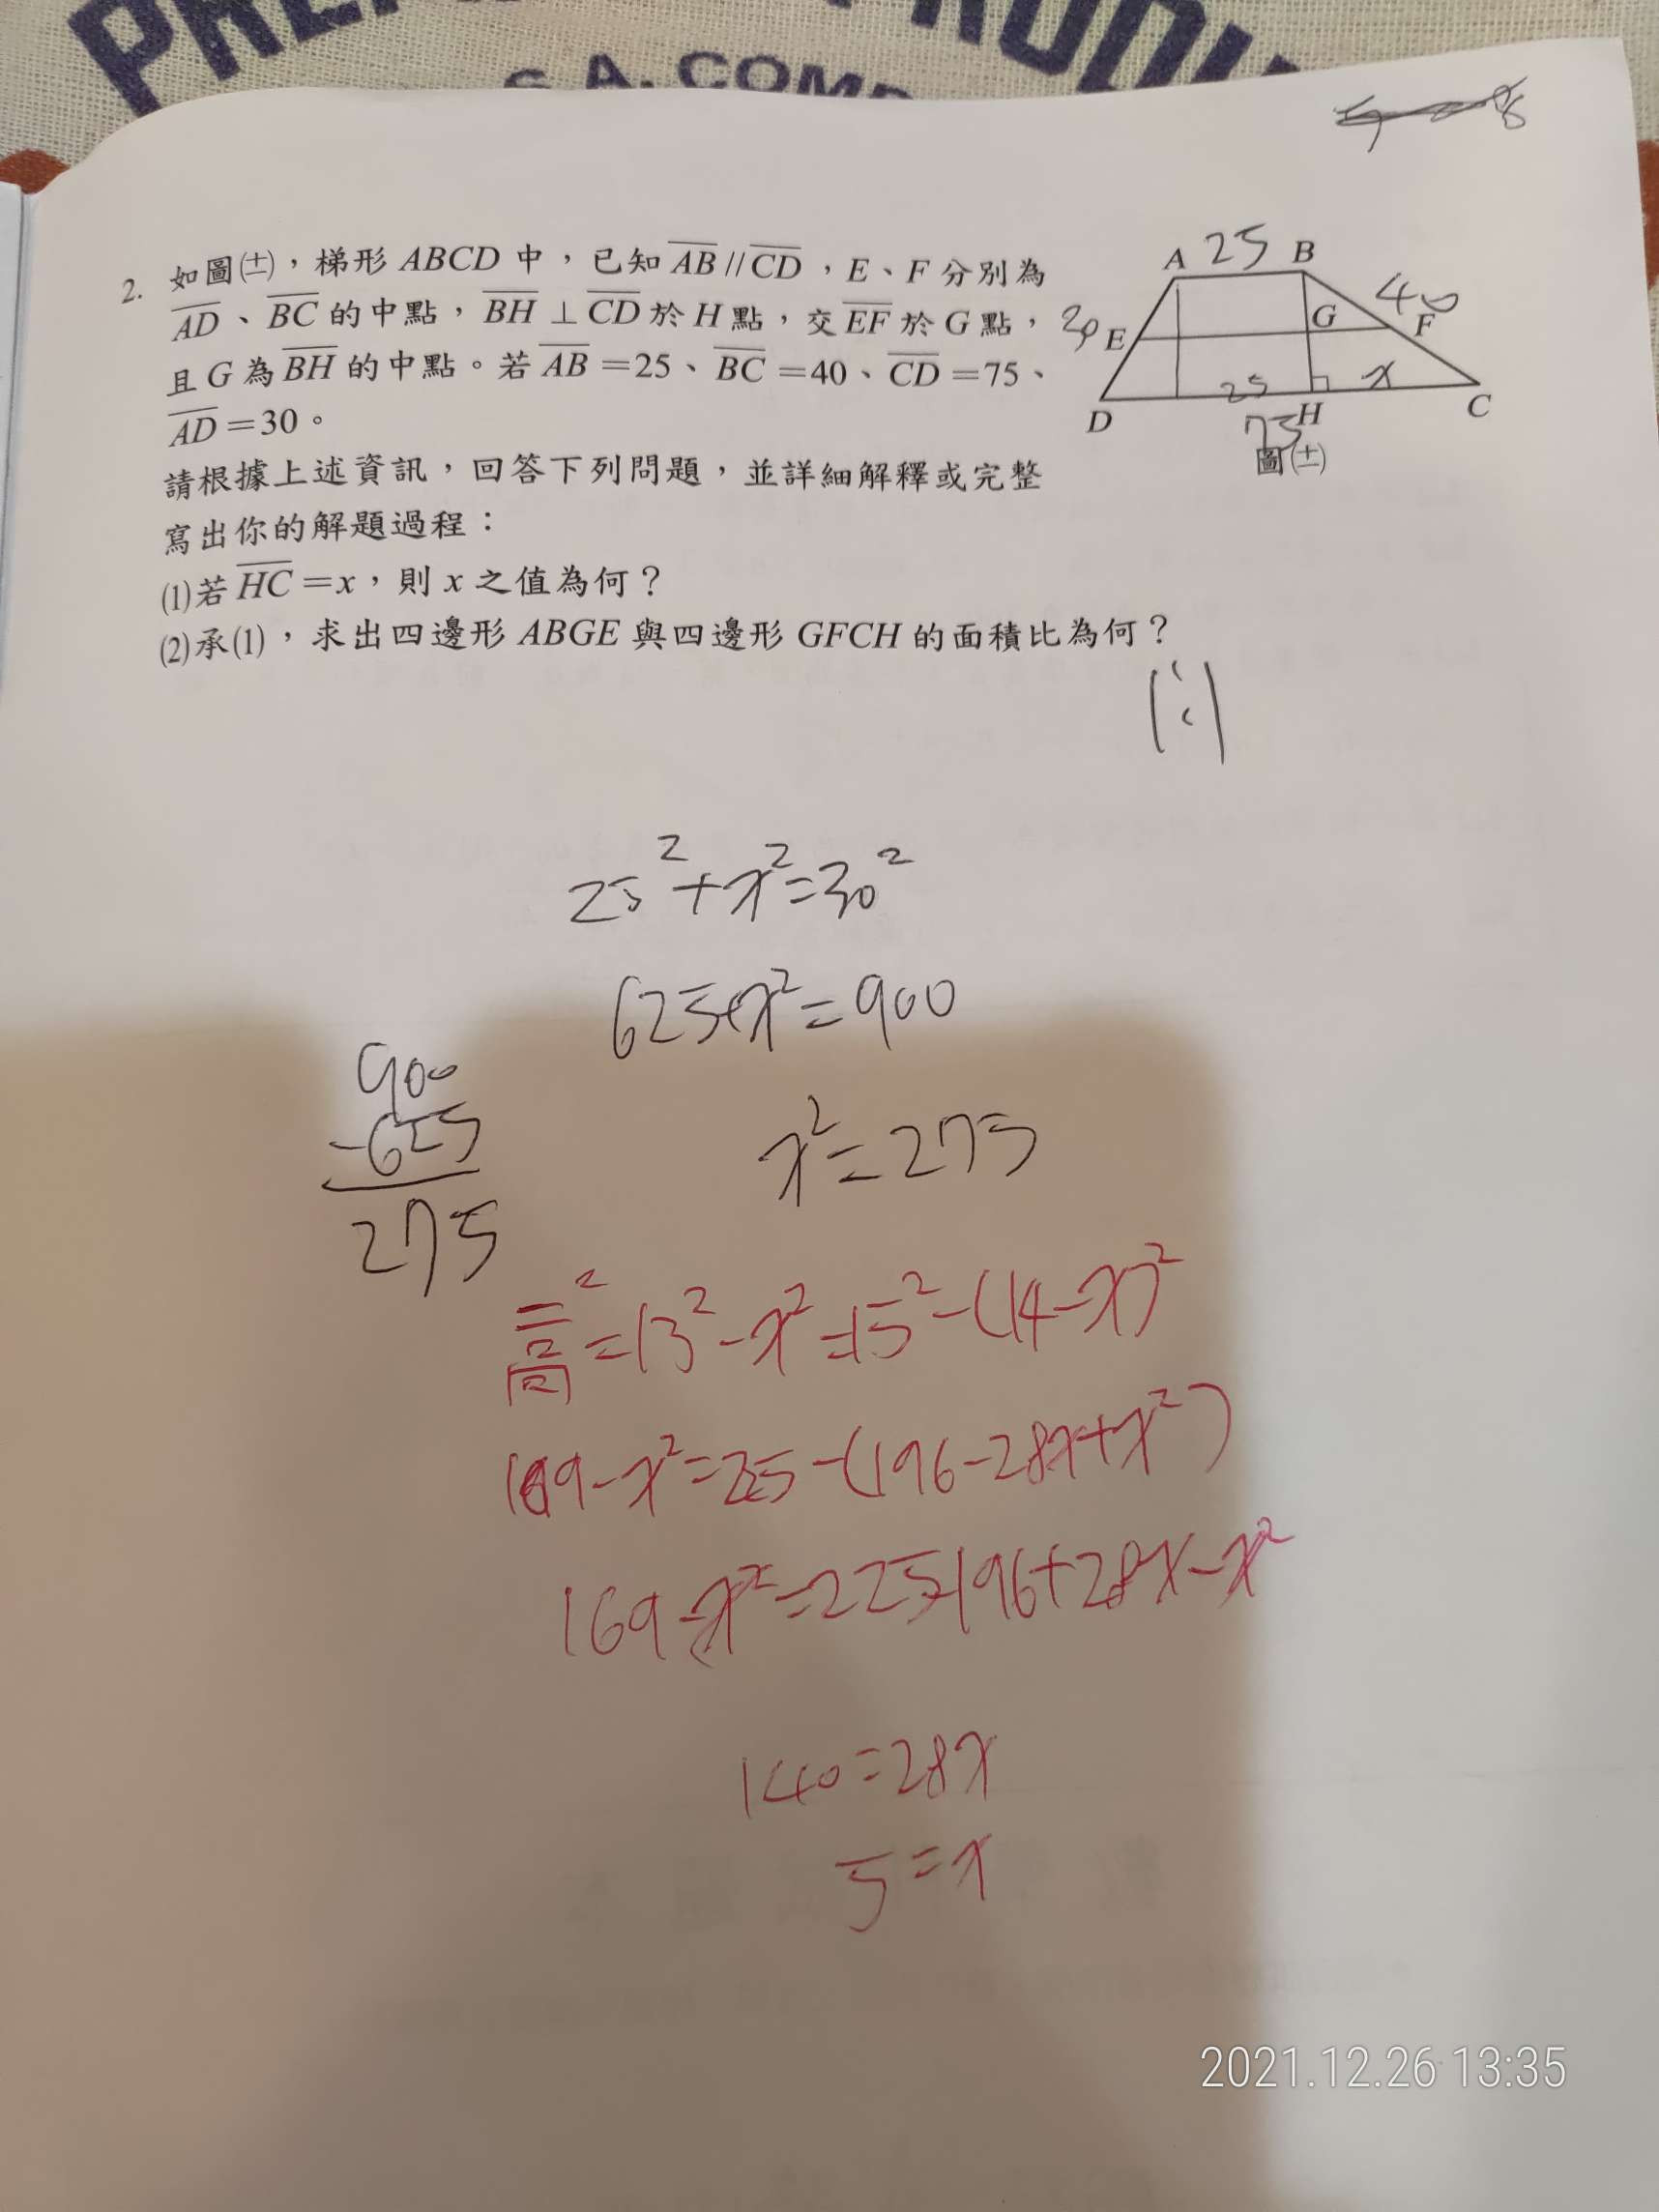 S.A. COMP
2. 如圖(十二),梯形 ABCD 中,已知 AB // CD,E、F 分別為
AD、BC 的中點,BH ⊥ CD 於 H 點,交 EF 於 G 點,
且 G 為 BH 的中點。若 AB =25、BC =40、CD =75、
AD =30。
請根據上述資訊,回答下列問題,並詳細解釋或完整
寫出你的解題過程:
(1)若 HC =x,則 x 之值為何?
(2)承(1),求出四邊形 ABGE 與四邊形 GFCH 的面積比為何?
A 25 B
40
30 E G F
25 x
D H C
75
圖(十二)
1:1
25²+x²=30²
625+x²=900
900
-625
275
x²=275
高²=13²-x²=15²-(14-x)²
169-x²=225-(196-28x+x²)
169-x²=225-196+28x-x²
140=28x
5=x
2021.12.26 13:35